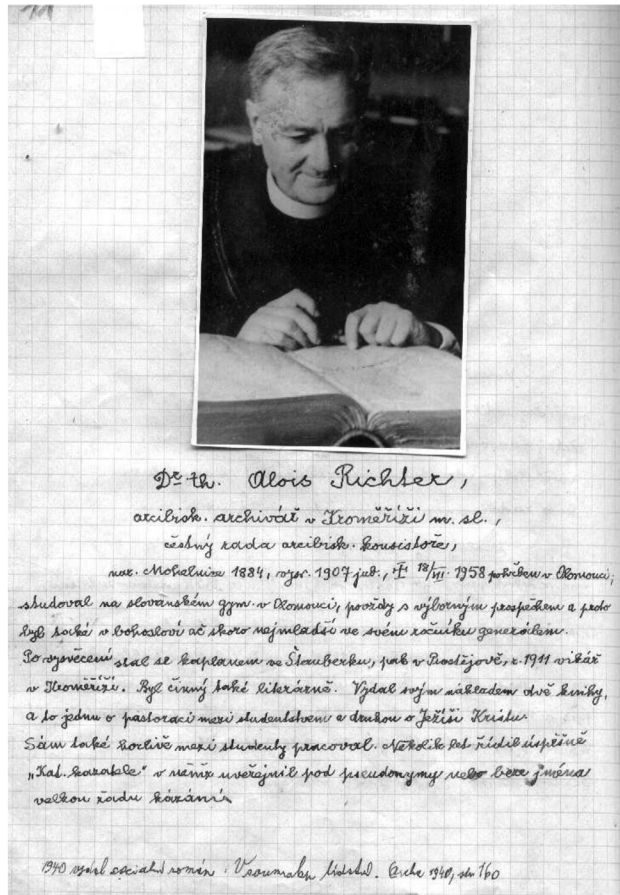 11
Dr. th. Alois Richter,
arcibisk. archivář v Kroměříži m. sl.,
čestný rada arcibisk. konsistoře,
nar. Mohelnice 1884, vysv. 1907 1958 pohřben v Olomouci;
studoval na slovanském gym. v Olomouci, povždy s výborným prospěchem a proto
byl také v bohosloví ač skoro nejmladší ve svém ročníku generálem.
Po vysvěcení stal se kaplanem ve Štauberku, pak v Prostějově, r. 1911 vikář
v Kroměříži. Byl činný také literárně. Vydal svým nákladem dvě knihy,
a to jednu o pastoraci mezi studentstvem a druhou o Ježíši Kristu.
Sám také horlivě mezi studenty pracoval. Několik let řídil úspěšně
„Kat. kazatele" v němž uveřejnil pod pseudonymy nebo beze jména
velkou řadu kázání.
1940 vydal sociální román: V soumraku lidstva. Archa 1940, str. 160